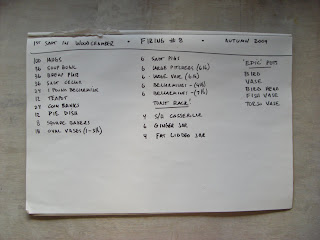 1ST SALT IN WOOD CHAMBER • FIRING #8 • AUTUMN 2009
100 MUGS
36 SOUP BOWL
36
36 SALT
24 1 POUND BELLARMINE
12 TEAPOT
24 COIN BANKS
12 PIE DISH
8 SQUARE BAKERS
14 OVAL VASES
6 SALT PIGS
6 LARGE PITCHERS (6lb)
6 LARGE VASE (6lb)
6 BELLARMINES - (4lb)
6 BELLARMINES - (7lb)
TOAST RACK!
4 CASSEROLE
6 GINGER JAR
4 FAT LIDDED JAR
"EPIC" POTS
BIRD
VASE
BIRD HEAD
FISH VASE
TORSO VASE